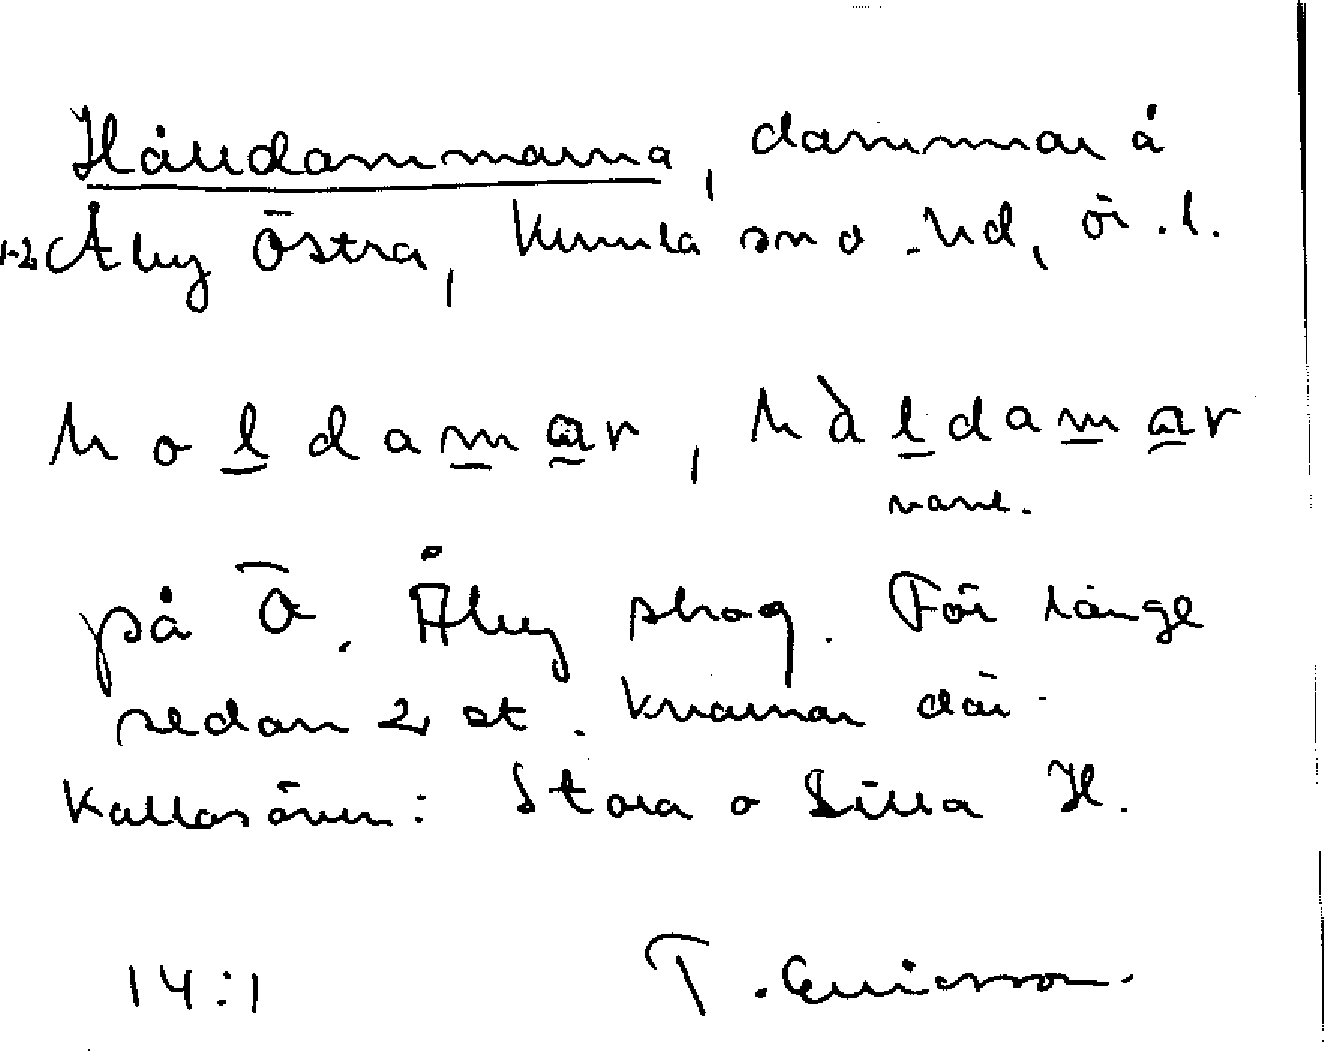 Hålldammarna, dammar å
1-2 Åby Östra, Kumla sn o hd, ör. l.
h o l d a m a r, h å̀ l d a m a r
vanl.
på Ö. Åby skog. För länge
sedan 2 st. kvarnar där.
Kallas även: Stora o Lilla H.
14:1 T. Ericsson.